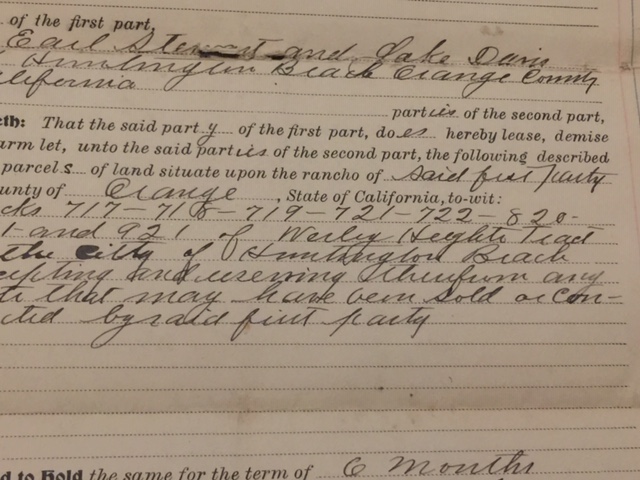 of the first part,
Earl Stewart and Jake Davis
Huntington Beach Orange County
lifornia
parties of the second part,
eth: That the said party of the first part, does hereby lease, demise
arm let, unto the said parties of the second part, the following described
parcels of land situate upon the rancho of said first party
unty of Orange, State of California, to-wit:
cks 717-718-719-721-722-820-
1-and 921 of Wesley Heights Tract
the city of Huntington Beach
cepting and reserving therefrom any
ts that may have been sold or con-
cted by said first party
d to Hold the same for the term of 6 months